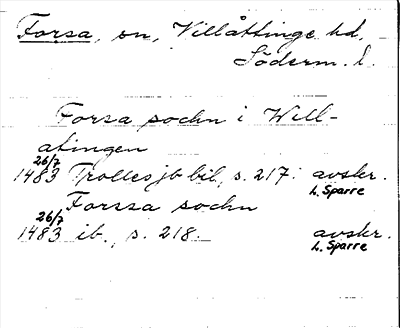 Forsa, sn, Villåttinge hd,
Söderm. l.
Forsa sochn i Will-
atingen
26/7
1483 Trolles jb bil, s. 217. avskr.
L. Sparre
Forssa sochn
26/7
1483 ib., s. 218. avskr.
L. Sparre